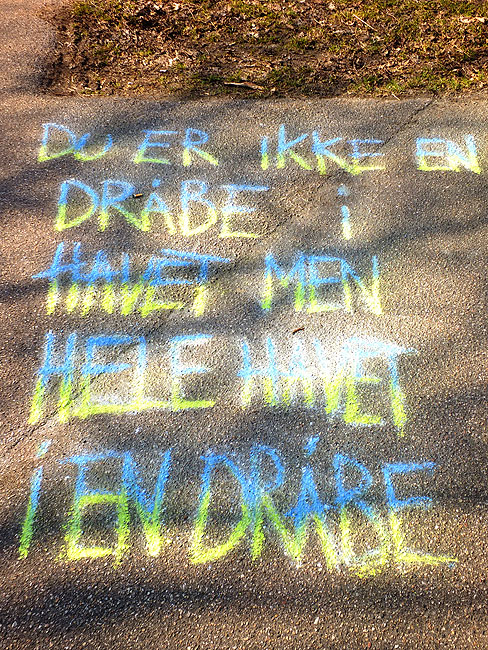 DU ER IKKE EN
DRÅBE i
HAVET MEN
HELE HAVET
i EN DRÅBE